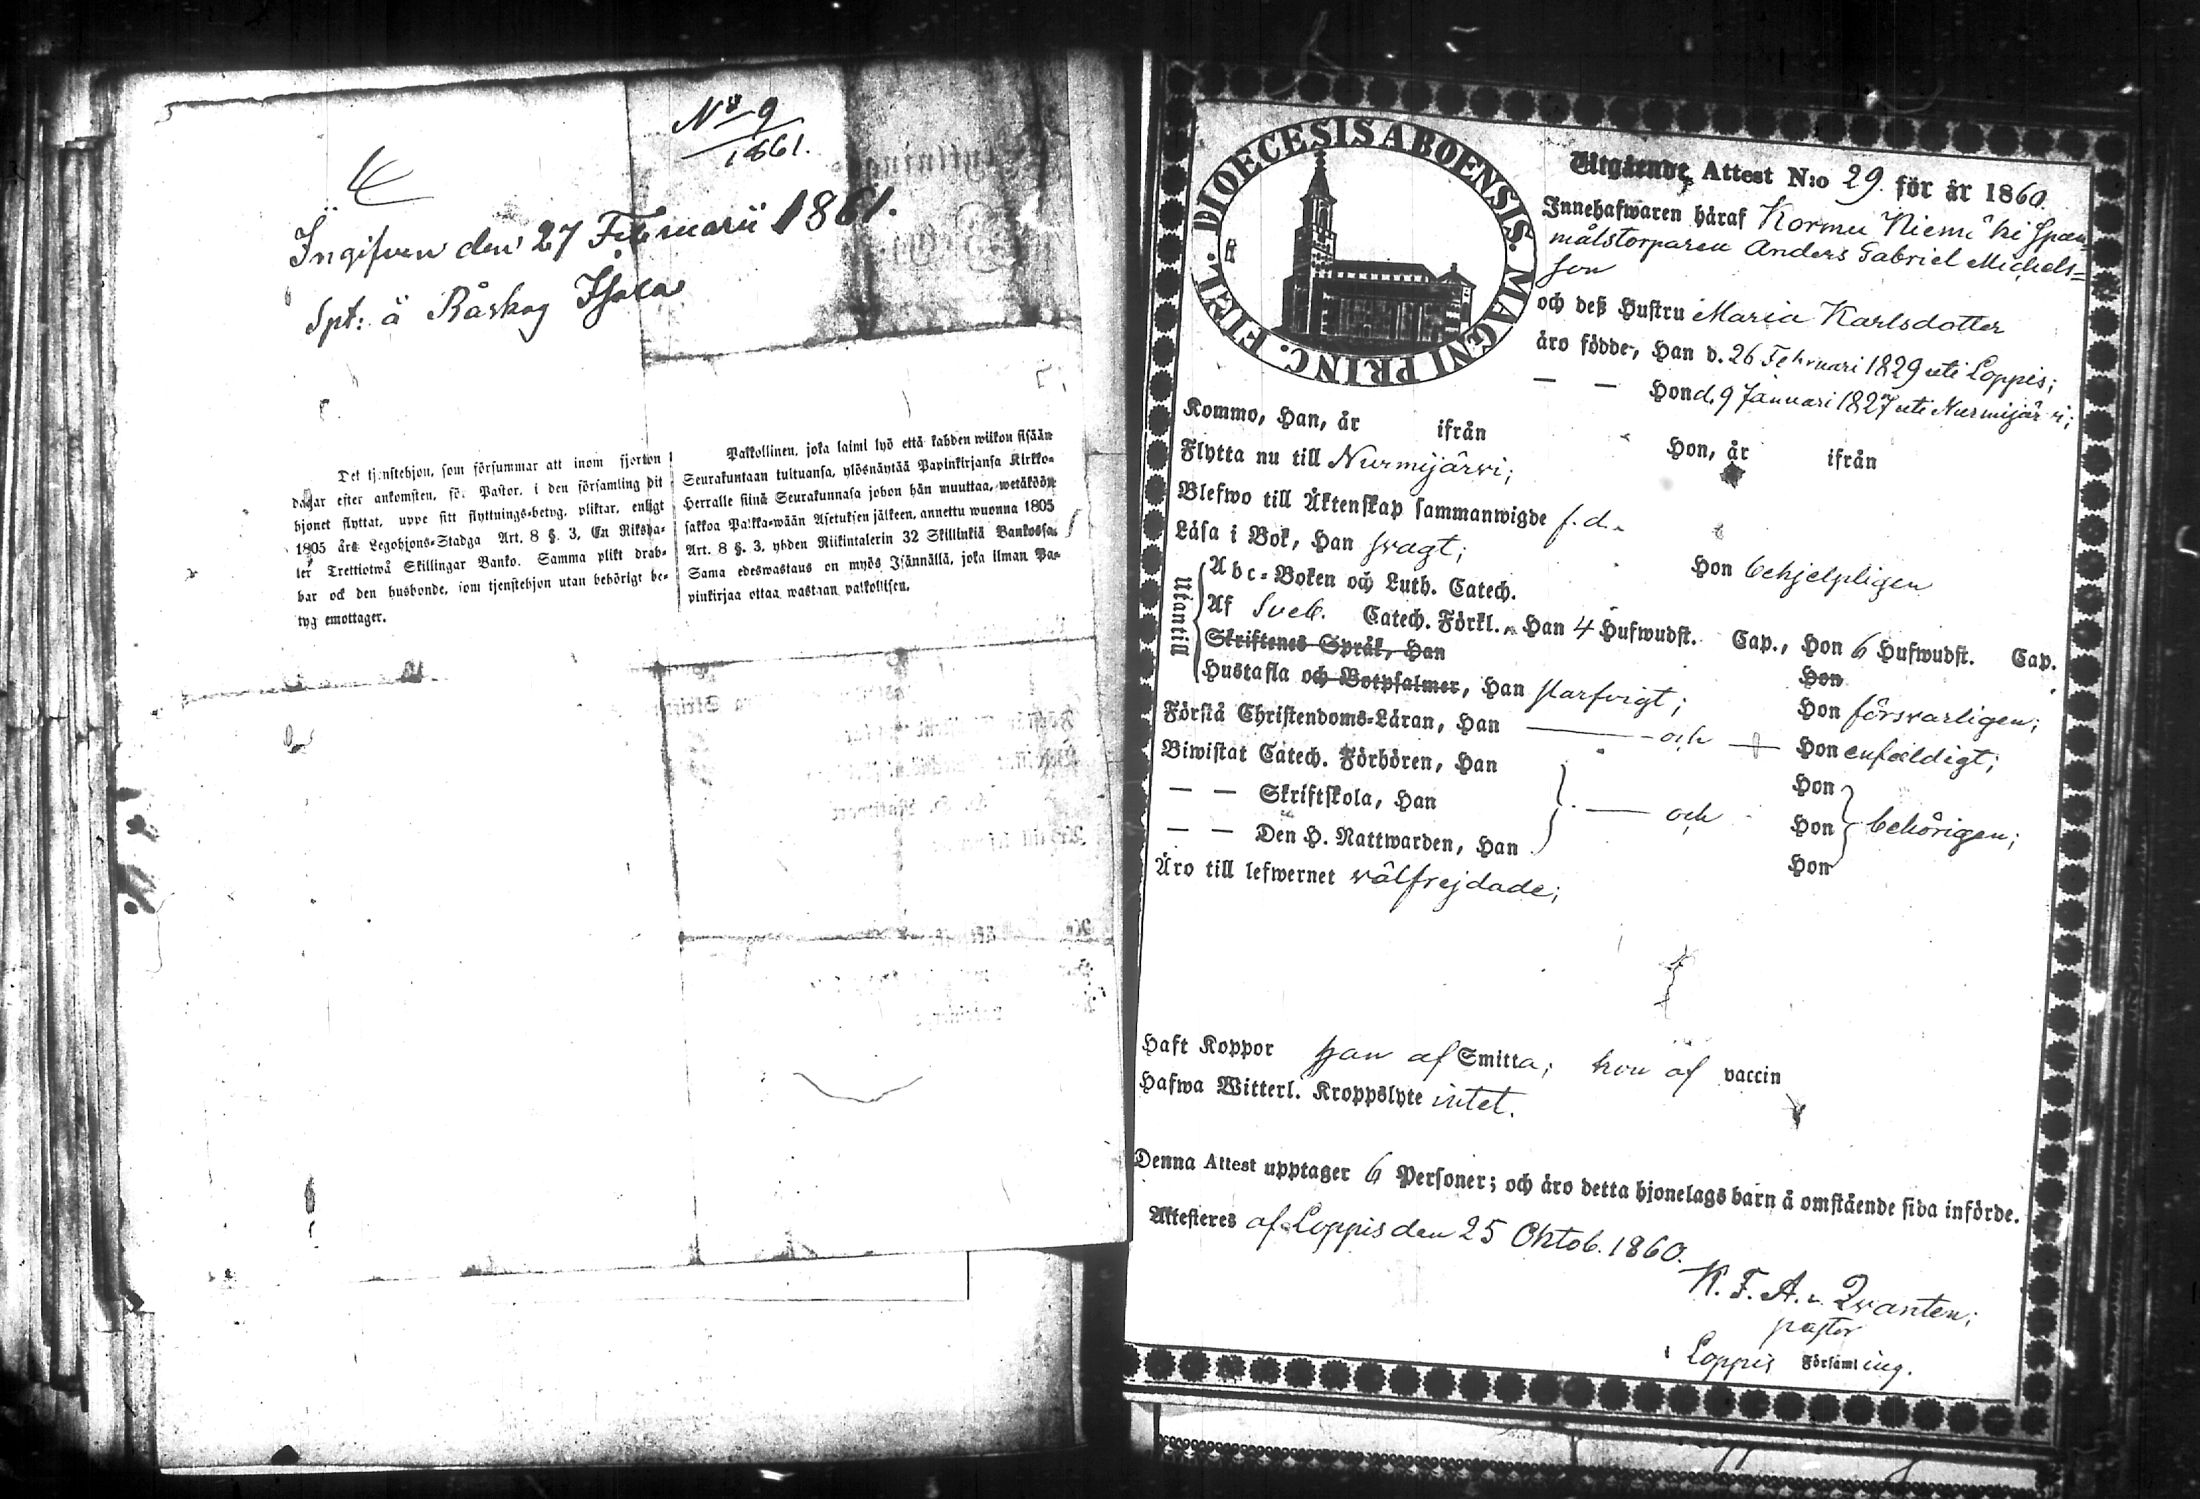 No 9
1861.
Ingifven den 27 Februarii 1861.
Spt: å Råskog
Det tjenstehjon, som försummar att inom fjorton
dagar efter ankomsten, för Pastor, i den församling dit
hjonet flyttat, uppte sitt flyttnings-betyg, pliktar, enligt
1805 års Legohjons-Stadga Art. 8 §. 3, En Riksda-
ler Trettiotwå Skillingar Banko. Samma plikt drab-
bar ock den husbonde, som tjenstehjon utan behörigt be-
tyg emottager.
Palkollinen, joka laimi lyö että kahden wiikon sisään
Seurakuntaan tultuansa, ylösnäyttää Papinkirjansa Kirkko-
Herralle siinä Seurakunnasa johon hän muuttaa, wetäköön
sakkoa Palkka-wään Asetuksen jälkeen, annettu wuonna 1805
Art. 8 §. 3, yhden Riikintalerin 32 Skillinkiä Bankossa.
Sama edeswastaus on myös Isännällä, joka ilman Pa-
pinkirjaa ottaa wastaan palkollisen.
DIOECESIS ABOENSIS. MAGNI PRINC. FINL.
Utgående Attest N:o 29. för år 1860.
Innehafwaren häraf Kormu Niemi ki Span-
målstorparen Anders Gabriel Michels=
son
och deß Hustru Maria Karlsdotter
äro födde, Han d. 26 Februari 1829 uti Loppis;
— — Hon d. 9 Januari 1827 uti Nurmijärvi;
Kommo, Han, år ifrån Hon, år ifrån
Flytta nu till Nurmijärvi;
Blefwo till Äktenskap sammanwigde f. d.
Läsa i Bok, Han svagt; Hon behjelpligen
Utantill
Abc-Boken och Luth. Catech.
Af Sveb. Catech. Förkl., Han 4 Hufwudst. Cap., Hon 6 Hufwudst. Cap.
Skriftenes Språk, Han Hon
Hustafla och Botpsalmer, Han starfvigt; Hon försvarligen;
Förstå Christendoms-Läran, Han — och — Hon enfaldigt;
Biwistat Catech. Förhören, Han Hon
— — Skriftskola, Han — och Hon behörigen;
— — Den H. Nattwarden, Han Hon
Äro till lefwernet välfrejdade;
Haft Koppor Han af Smitta; hon af vaccin
Hafwa Witterl. Kroppslyte intet.
Denna Attest upptager 6 Personer; och äro detta hjonelags barn å omstående sida införde.
Attesteres af Loppis den 25 Oktob. 1860.
K. F. A. v. Qvanten;
pastor
i Loppis Församling.